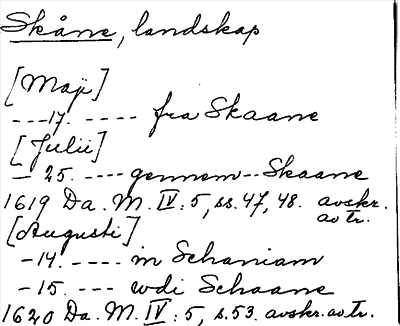 Skåne, landskap
[Maji]
---17. ---- fra Skaane
[Julii]
- 25. ---- gennem--Skaane
1619 Da. M. IV: 5, ss. 47, 48. avskr.
av tr.
[Augusti]
-14. ---- in Schaniam
-15. --- udi Schaane
1620 Da. M. IV: 5, s. 53. avskr. av tr.